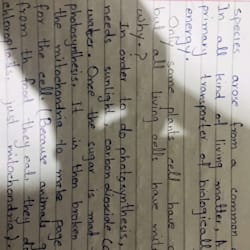 species arose from a common
In all kind of living matter, A
primary transporter of biologicall
enerny.
Only some plants cell have
but all living cells have mit
Why?
In order to do photosynthesis,
needs sunlight, carbondioxide (c
water. Once the sugar is mad
photosynthesis. It is then broken
the mitochondria to make page
for the cell. Because animal g
from th food they eat, they d
just mitochondria